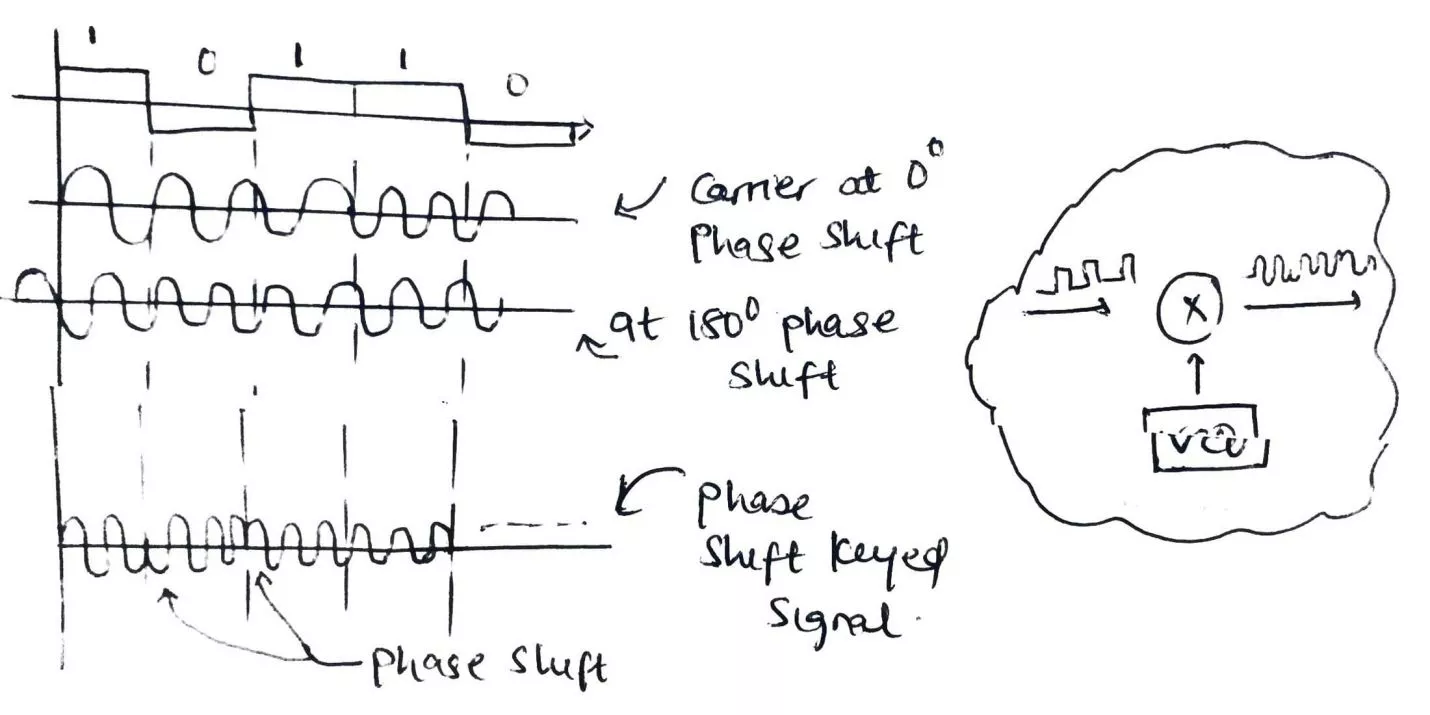 1 0 1 1 0
Carrier at 0°
Phase Shift
at 180° phase
Shift
X
VCO
Phase
Shift Keyed
Signal.
Phase Shift